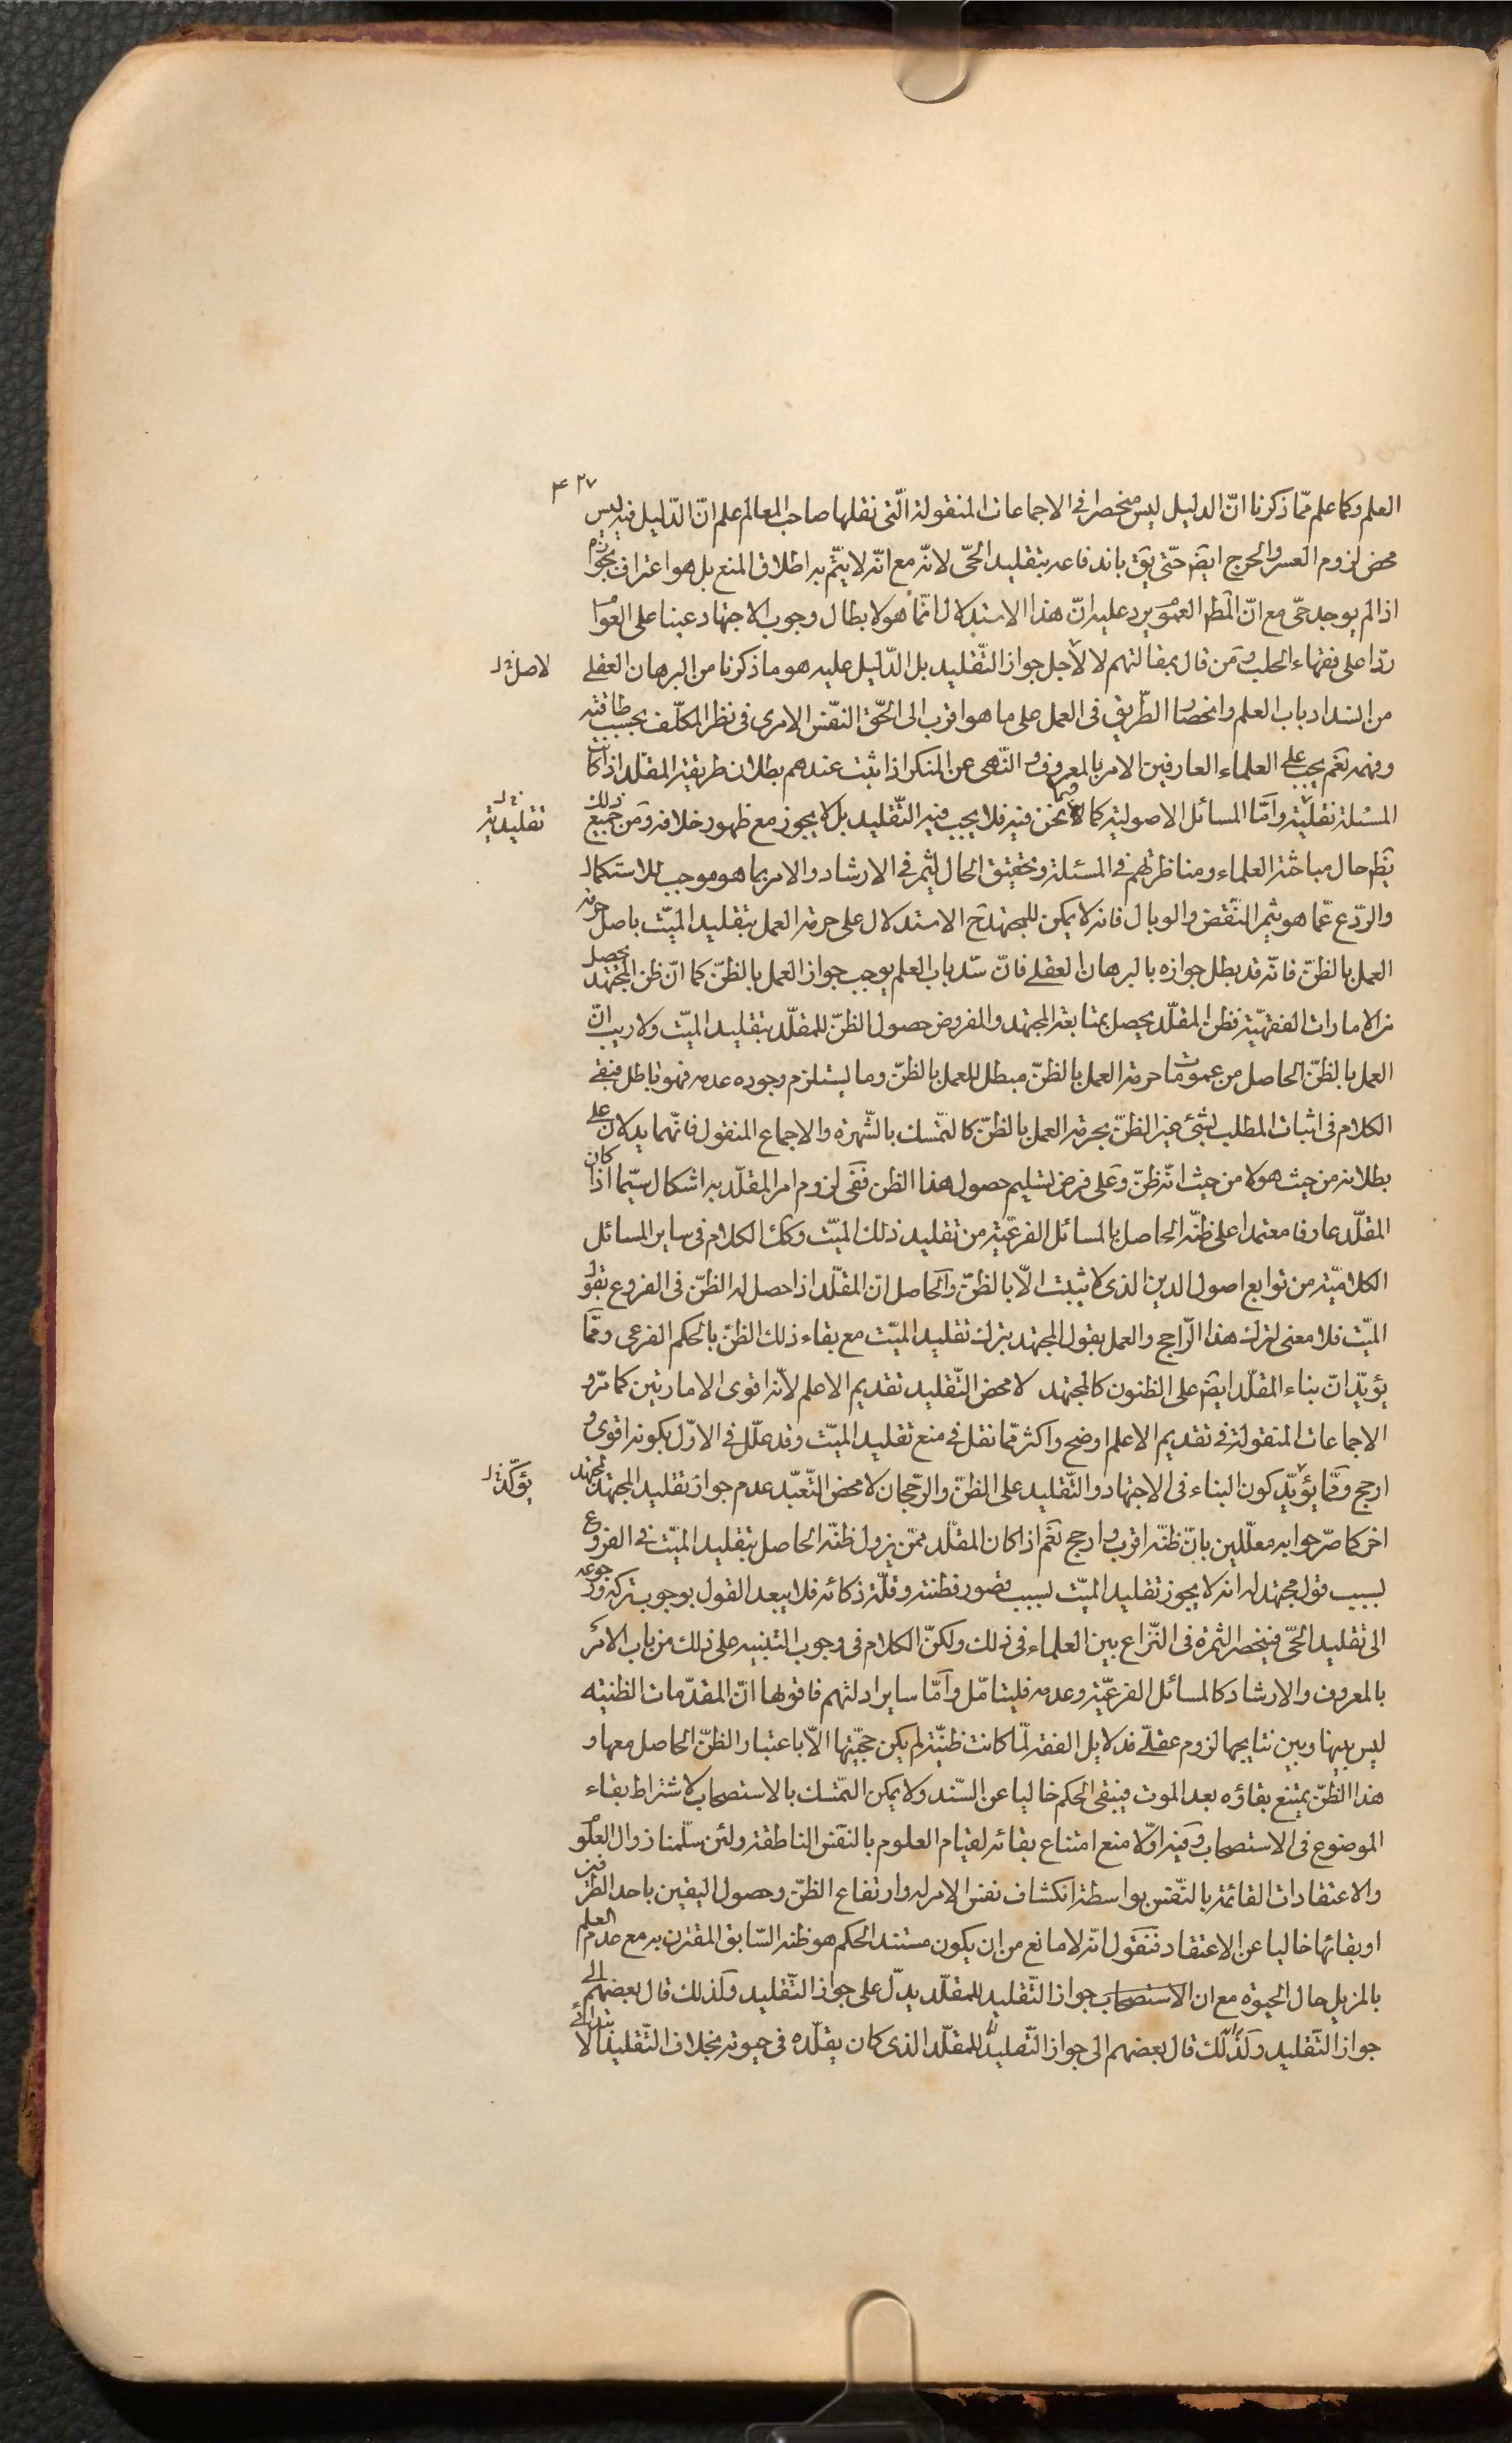 ۴۲۷
العلم وكما علم ممّا ذكرنا انّ الدليل ليس منحصرا في الاجماعات المنقولة الّتى نقلها صاحب المعالم علم انّ الدّليل فيه ليس
محض لزوم العسر والحرج ايضَ حتّى يقَ باندفاعه بتقليد الحىّ لانّه مع انّه لا يتمّ به اطلاق المنع بل هو اعتراف بجوازه
اذا لم يوجد حىّ مع انّ المطلَ العموَ يرد عليه انّ هذا الاستدلال انّما هو لابطال وجوب الاجتهاد عينا على العوامّ
ردّا على فقهاء الحلب ومن قال بمقالتهم لا لاجل جواز التّقليد بل الدّليل عليه هو ما ذكرنا من البرهان العقلے
لاصل نخ
من انسداد باب العلم وانحصار الطّريق فى العمل على ما هو اقرب الى الحّق النّفس الامرى فى نظر المكلّف بحسب طاقته
وفهمه نعَم يجب على العلماء العارفين الامر بالمعروف والنّهى عن المنكر اذا ثبت عندهم بطلان طريقة المقلّد اذا كانت
المسئلة نقليّة وامّا المسائل الاصولية كما فيما نحن فيه فلا يجب فيه التّقليد بل لا يجوز مع ظهور خلافه ومن جميع ذلك
تقليدية
يظهَ حال مباحثة العلماء ومناظرتهم فى المسئلة وتحقيق الحال ليثمر فى الارشاد والامر بما هو موجب للاستكمال
والرّدع عمّا هو يثمر النّقض والوبال فانه لا يمكن للمجتهد حَ الاستدلال على حرمة العمل بتقليد الميّت باصل حرمة
العمل بالظنّ فانّه قد بطل جوازه بالبرهان العقلے فانّ سّد باب العلم يوجب جواز العمل بالظنّ كما انّ ظن المجتهد يحصل
من الامارات الفقهيّة فظن المقلّد يحصل بمتابعة المجتهد والمفروض حصول الظنّ للمقلّد بتقليد الميّت ولا ريب انّ
العمل بالظنّ الحاصل من عمومات حرمة العمل بالظنّ مبطل للعمل بالظنّ وما يستلزم وجوده عدمه فهو باطل فبقے
الكلام فى اثبات المطلب بشئ غير الظنّ بحرمة العمل بالظنّ كالتمّسك بالشّهرة والاجماع المنقول فانّهما يدلان على
بطلانه من حيث هو لا من حيث انّه ظنّ وعلى فرض تسليم حصول هذا الظن ففى لزوم امر المقلّد به اشكال سيّما اذا كان
المقلّد عارفا معتمدا على ظنّه الحاصل بالمسائل الفرعيّة من تقليد ذلك الميّت وكك الكلام فى ساير المسائل
الكلاميّة من توابع اصول الدين الذى لا يثبت الّا بالظنّ والحاصل انّ المقلّد اذا حصل له الظنّ فى الفروع بقول
الميّت فلا معنى لترك هذا الرّاجح والعمل بقول المجتهد بترك تقليد الميّت مع بقاء ذلك الظنّ بالحكم الفرعى وممّا
يؤيّد انّ بناء المقلّد ايضَ على الظنون كالمجتهد لا محض التّقليد تقديم الاعلم لانّه اقوى الامارتين كما مّر و
الاجماعات المنقولة فى تقديم الاعلم اوضح واكثر ممّا نقل فى منع تقليد الميّت وقد علّل فى الاوّل بكونه اقوى و
ارجح وممّا يؤيّد كون البناء فى الاجتهاد والتّقليد على الظنّ والرّجحان لا محض التّعبّد عدم جواز تقليد المجتهد لمجتهد
يؤكّد نخ
اخر كما صرّحوا به معلّلين بانّ ظنّه اقرب وارجح نعَم اذا كان المقلّد ممّن يزول ظنّه الحاصل بتقليد الميّت فى الفروع
بسبب قول مجتهد له انه لا يجوز تقليد الميّت بسبب قصور فطنته وقلّة ذكائه فلا يبعد القول بوجوب تركه ورجوعه
الى تقليد الحىّ فينحصر الثمرة فى النّزاع بين العلماء فى ذلك ولكنّ الكلام فى وجوب التنبيه على ذلك من باب الامر
بالمعروف والارشاد كالمسائل الفرعيّة وعدمه فليتامّل وامّا ساير ادلتهم فاقولها انّ المقدّمات الظنيّه
ليس بينها وبين نتايجها لزوم عقلّے فدلايل الفقه لمّا كانت ظنيّة لم يكن حجيّتها الّا باعتبار الظنّ الحاصل معها و
هذا الظنّ يمتنع بقاؤه بعد الموت فيبقى الحكم خاليا عن السّند ولا يمكن التمّسك بالاستصحاب لاشتراط بقاء
الموضوع فى الاستصحاب وفيه اوّلا منع امتناع بقائه لقيام العلوم بالنفس الناطقة ولئن سلّمنا زوال العلوم
والاعتقادات القائمة بالنّفس بواسطة انكشاف نفس الامر له وارتفاع الظنّ وحصول اليقين باحد الطّرفين
او بقائها خاليا عن الاعتقاد فنقول انّه لا مانع من ان يكون مستند الحكم هو ظنه السّابق المقترن به مع عدم العلم
بالمزيل حال الحيوة مع ان الاستصحاب جواز التّقليد للمقلّد يدّل على جواز التّقليد ولذلك قال بعضهم الى
جواز التّقليد ولذلك قال بعضهم الى جواز التّقليد للمقلّد الذى كان يقلّده فى حيوته بخلاف التّقليد الا